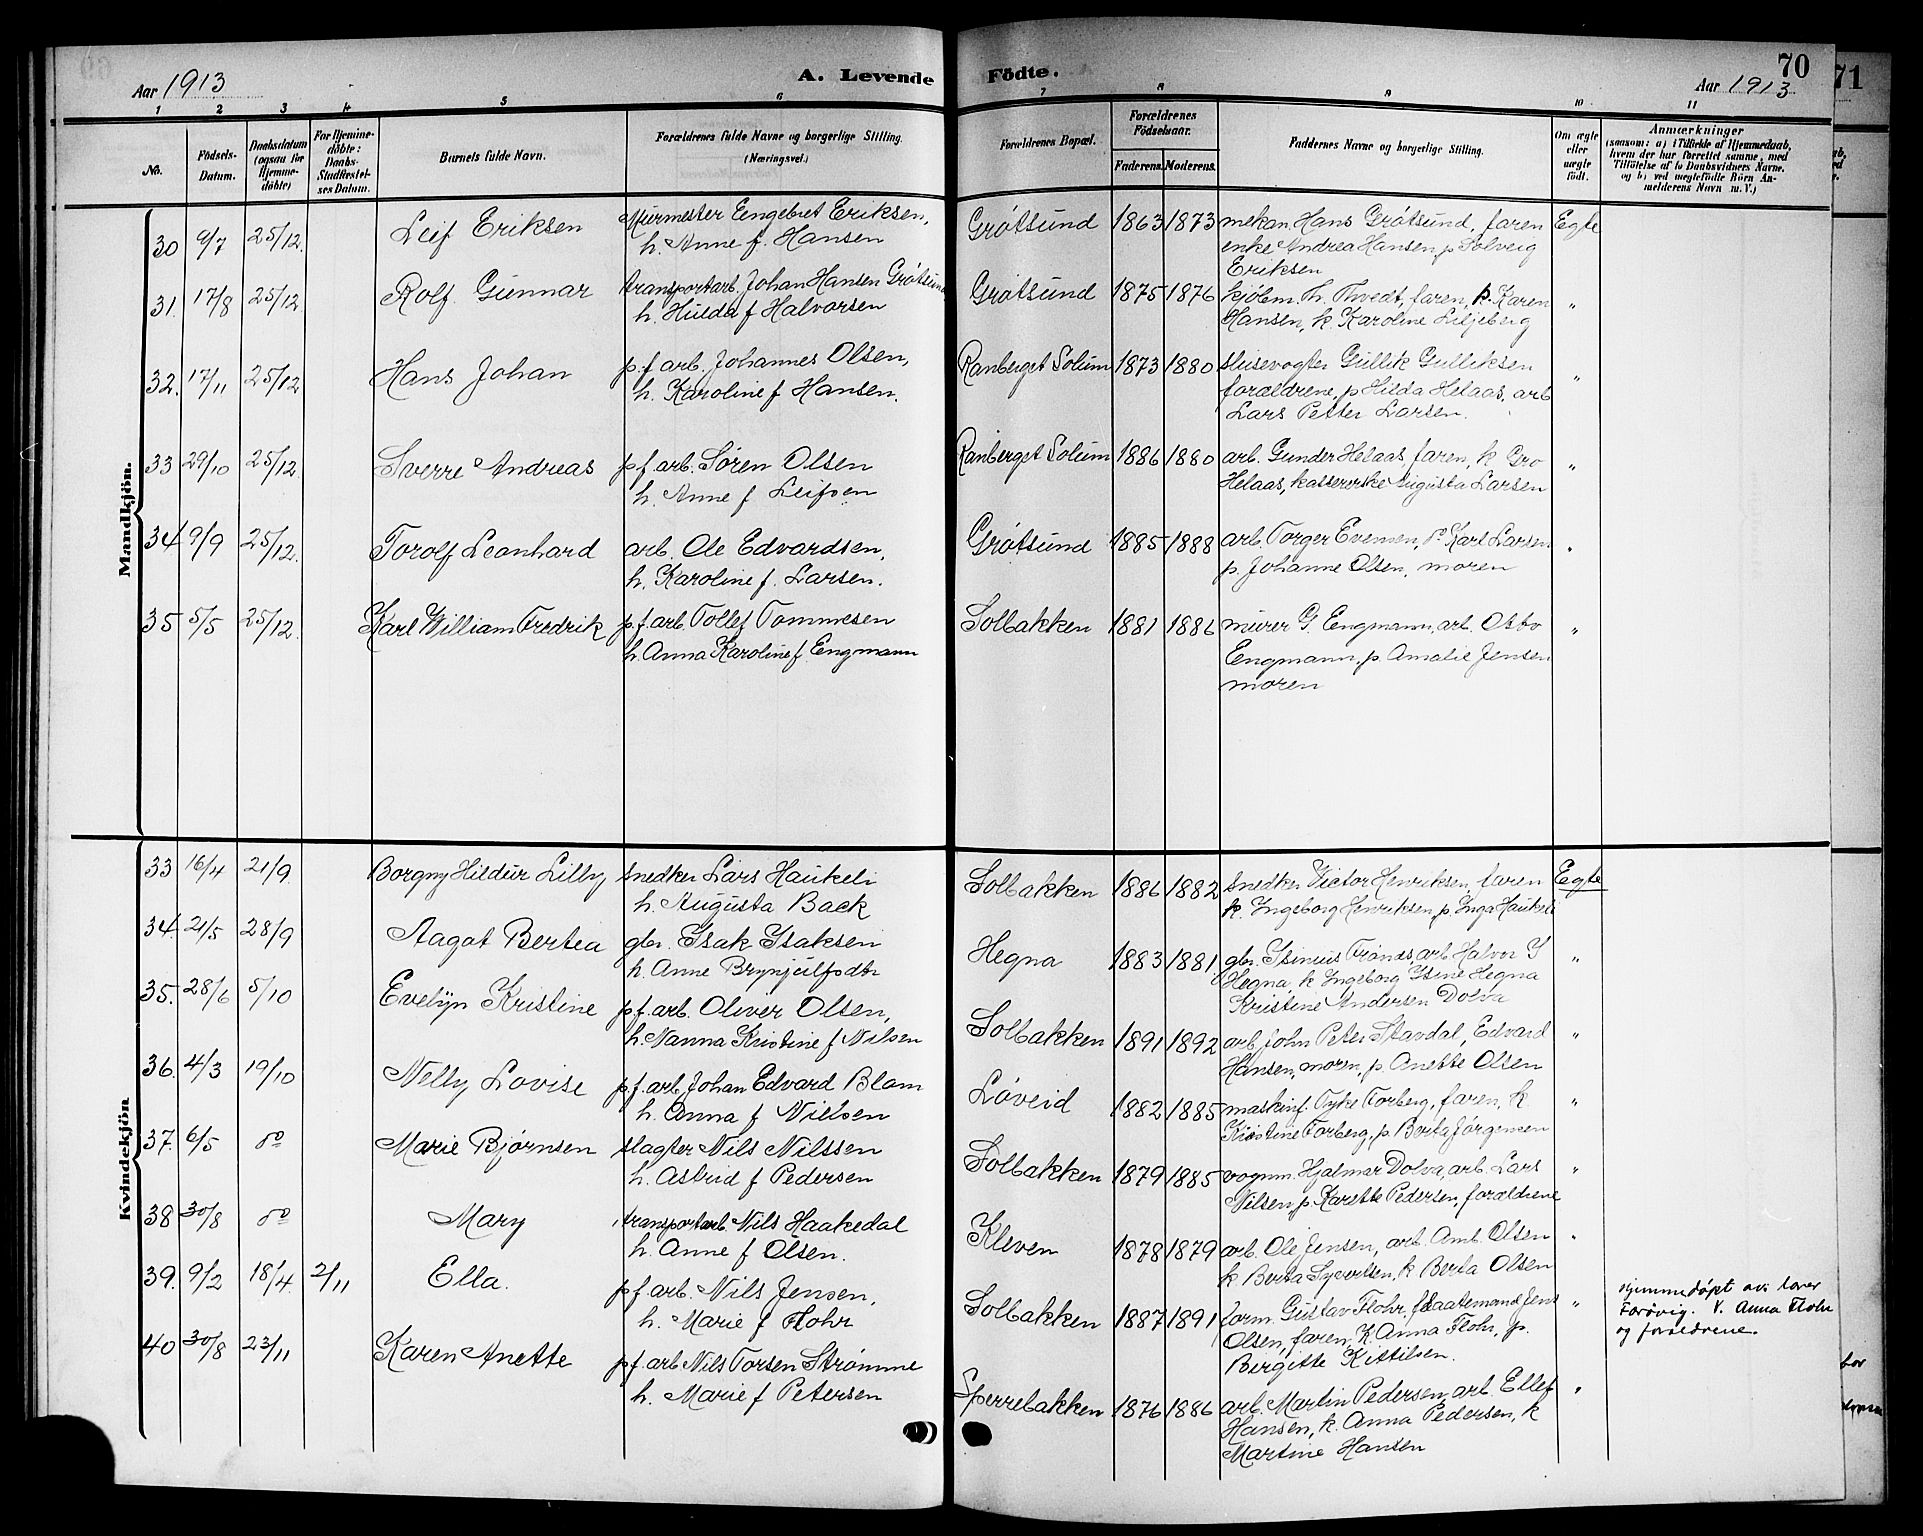 Aar 1913
A. Levende
1 2 3 4 5 6
No.
Födsels-
Datum.
Daabsdatum
(ogsaa for
Hjemme-
döbte)
For Hjemme-
döbte:
Daabs-
Stadfæstel-
ses Datum.
Barnets fulde Navn.
Forældrenes fulde Navne og borgerlige Stilling.
(Næringsvei.)
Mandkjön.
30 9/7 25/12 Leif Eriksen Murmester Eengebret Eriksen,
h. Anne f. Hansen
31. 17/8 25/12 Rolf Gunnar transportarb. Johan Hansen Grøtsund
h. Hulda f Halvorsen
32. 17/11 25/12 Hans Johan p.f arb. Johannes Olsen,
h. Karoline f Hansen.
33 29/10 25/12 Sverre Andreas p f arb. Søren Olsen
h. Anne f Leifsen
34 9/9 25/12. Torolf Leonhard arb. Ole Edvardsen,
h. Karoline f. Larsen.
35 5/5 25/12 Karl William Fredrik p.f. arb. Tollef Tommesen
h. Anna Karoline f. Eengmann
Kvindekjön
33 16/4 21/9 Borgny Hildur Lilly snedker Lars Haukeli
h. Augusta Back
34. 21/5 28/9 Aagot Bertea gbr. Isak Isaksen
h. Anne Brynjulfsdtr
35. 28/6 5/10 Evelyn Kristine p f. arb. Oliver Olsen,
h. Nanna Kristine f Nilsen
36. 4/3 19/10 Nelly Lovise p f. arb. Johan Edvard Blam
h. Anna f Nielsen
37. 6/5 do Marie Bjørnsen slagter Nils Nilssen
h. Astrid f Pedersen
38 30/8 do Mary transportarb Nils Haakedal
h. Anne f Olsen.
39. 9/2 18/4 2/11 Ella. p f arb. Nils Jensen,
h. Marie f Flohr
40 30/8 23/11 Karen Anette p f arb Nils Torsen Strømme
h. Marie f Petersen
Födte.
70
Aar 1913
7 8 9 10 11
Forældrenes Bopæl.
Forældrenes
Födselsaar.
Faderens. Moderens.
Faddernes Navne og borgerlige Stilling.
Om ægte
eller
uægte
födt.
Anmærkninger
(saasom: a) i Tilfælde af Hjemmedaab,
hvem der har forrettet samme, med
Tilföielse af to Daabsvidners Navne,
og b) ved uægtefödte Börn An-
melderens Navn m. V.)
Grøtsund 1863 1873 mekan. Hans Grøtsund, faren Egte
enke Andrea Hansen, p Solveig
Eriksen
Grøtsund 1875 1876 kjølem. Th. Thvedt, faren, k. Karen "
Hansen, k. Karoline Liljeberg
Ranberget Solum 1873 1880 slusevogter Gullik Gulliksen
forældrene, p Hilda Helaas, arb "
Lars Petter Larsen.
Ranberget Solum 1886 1880 arb. Gunder Helaas, faren, k Gro "
Helaas, kassererske Augusta Larsen
Grøtsund 1885 1888 arb. Torger Evensen, Karl Larsen "
p. Johanne Olsen, moren
Solbakken 1881 1886 murer G. Eengmann, arb. "
Eengmann, p. Amalie Jensen
moren
Solbakken 1886 1882 snedker Victor Henriksen, faren Egte
k. Ingeborg Henriksen, p. Inga Haukeli
Hegna 1883 1881 gbr. Isinius Trønes, arb Halvor I "
Hegna, k Ingeborg Isine Hegna
Kristine Andersen Dolva
Solbakken 1891 1892 arb. John Peter Stavdal, Edvard "
Hansen, moren, p Anette Olsen
Løveid 1882 1885 maskinf. Tyke Torberg, faren, k "
Kristine Torberg, p. Berta Jørgensen
Solbakken 1879 1885 vognm. Hjalmar Dolva, arb. Lars "
Nilsen p. Karette Pedersen, forældrene
Kleven 1878 1879 arb. Ole Jensen, arb. Amb. Olsen "
k Berta Syvertsen, k Berta Olsen
Solbakken 1887 1891 form. Gustav Flohr, flaatemand Jens "
Olsen, faren, k. Anna Flohr, p.
Bergitte Kittilsen.
hjemmedøpt av lærer
Farøvig. V. Anna Flohr
og forældrene.
Sperrebakken 1876 1886 arb. Martin Pedersen, arb. Ellef "
Hansen, k. Anna Pedersen, k
Martine Hansen
71